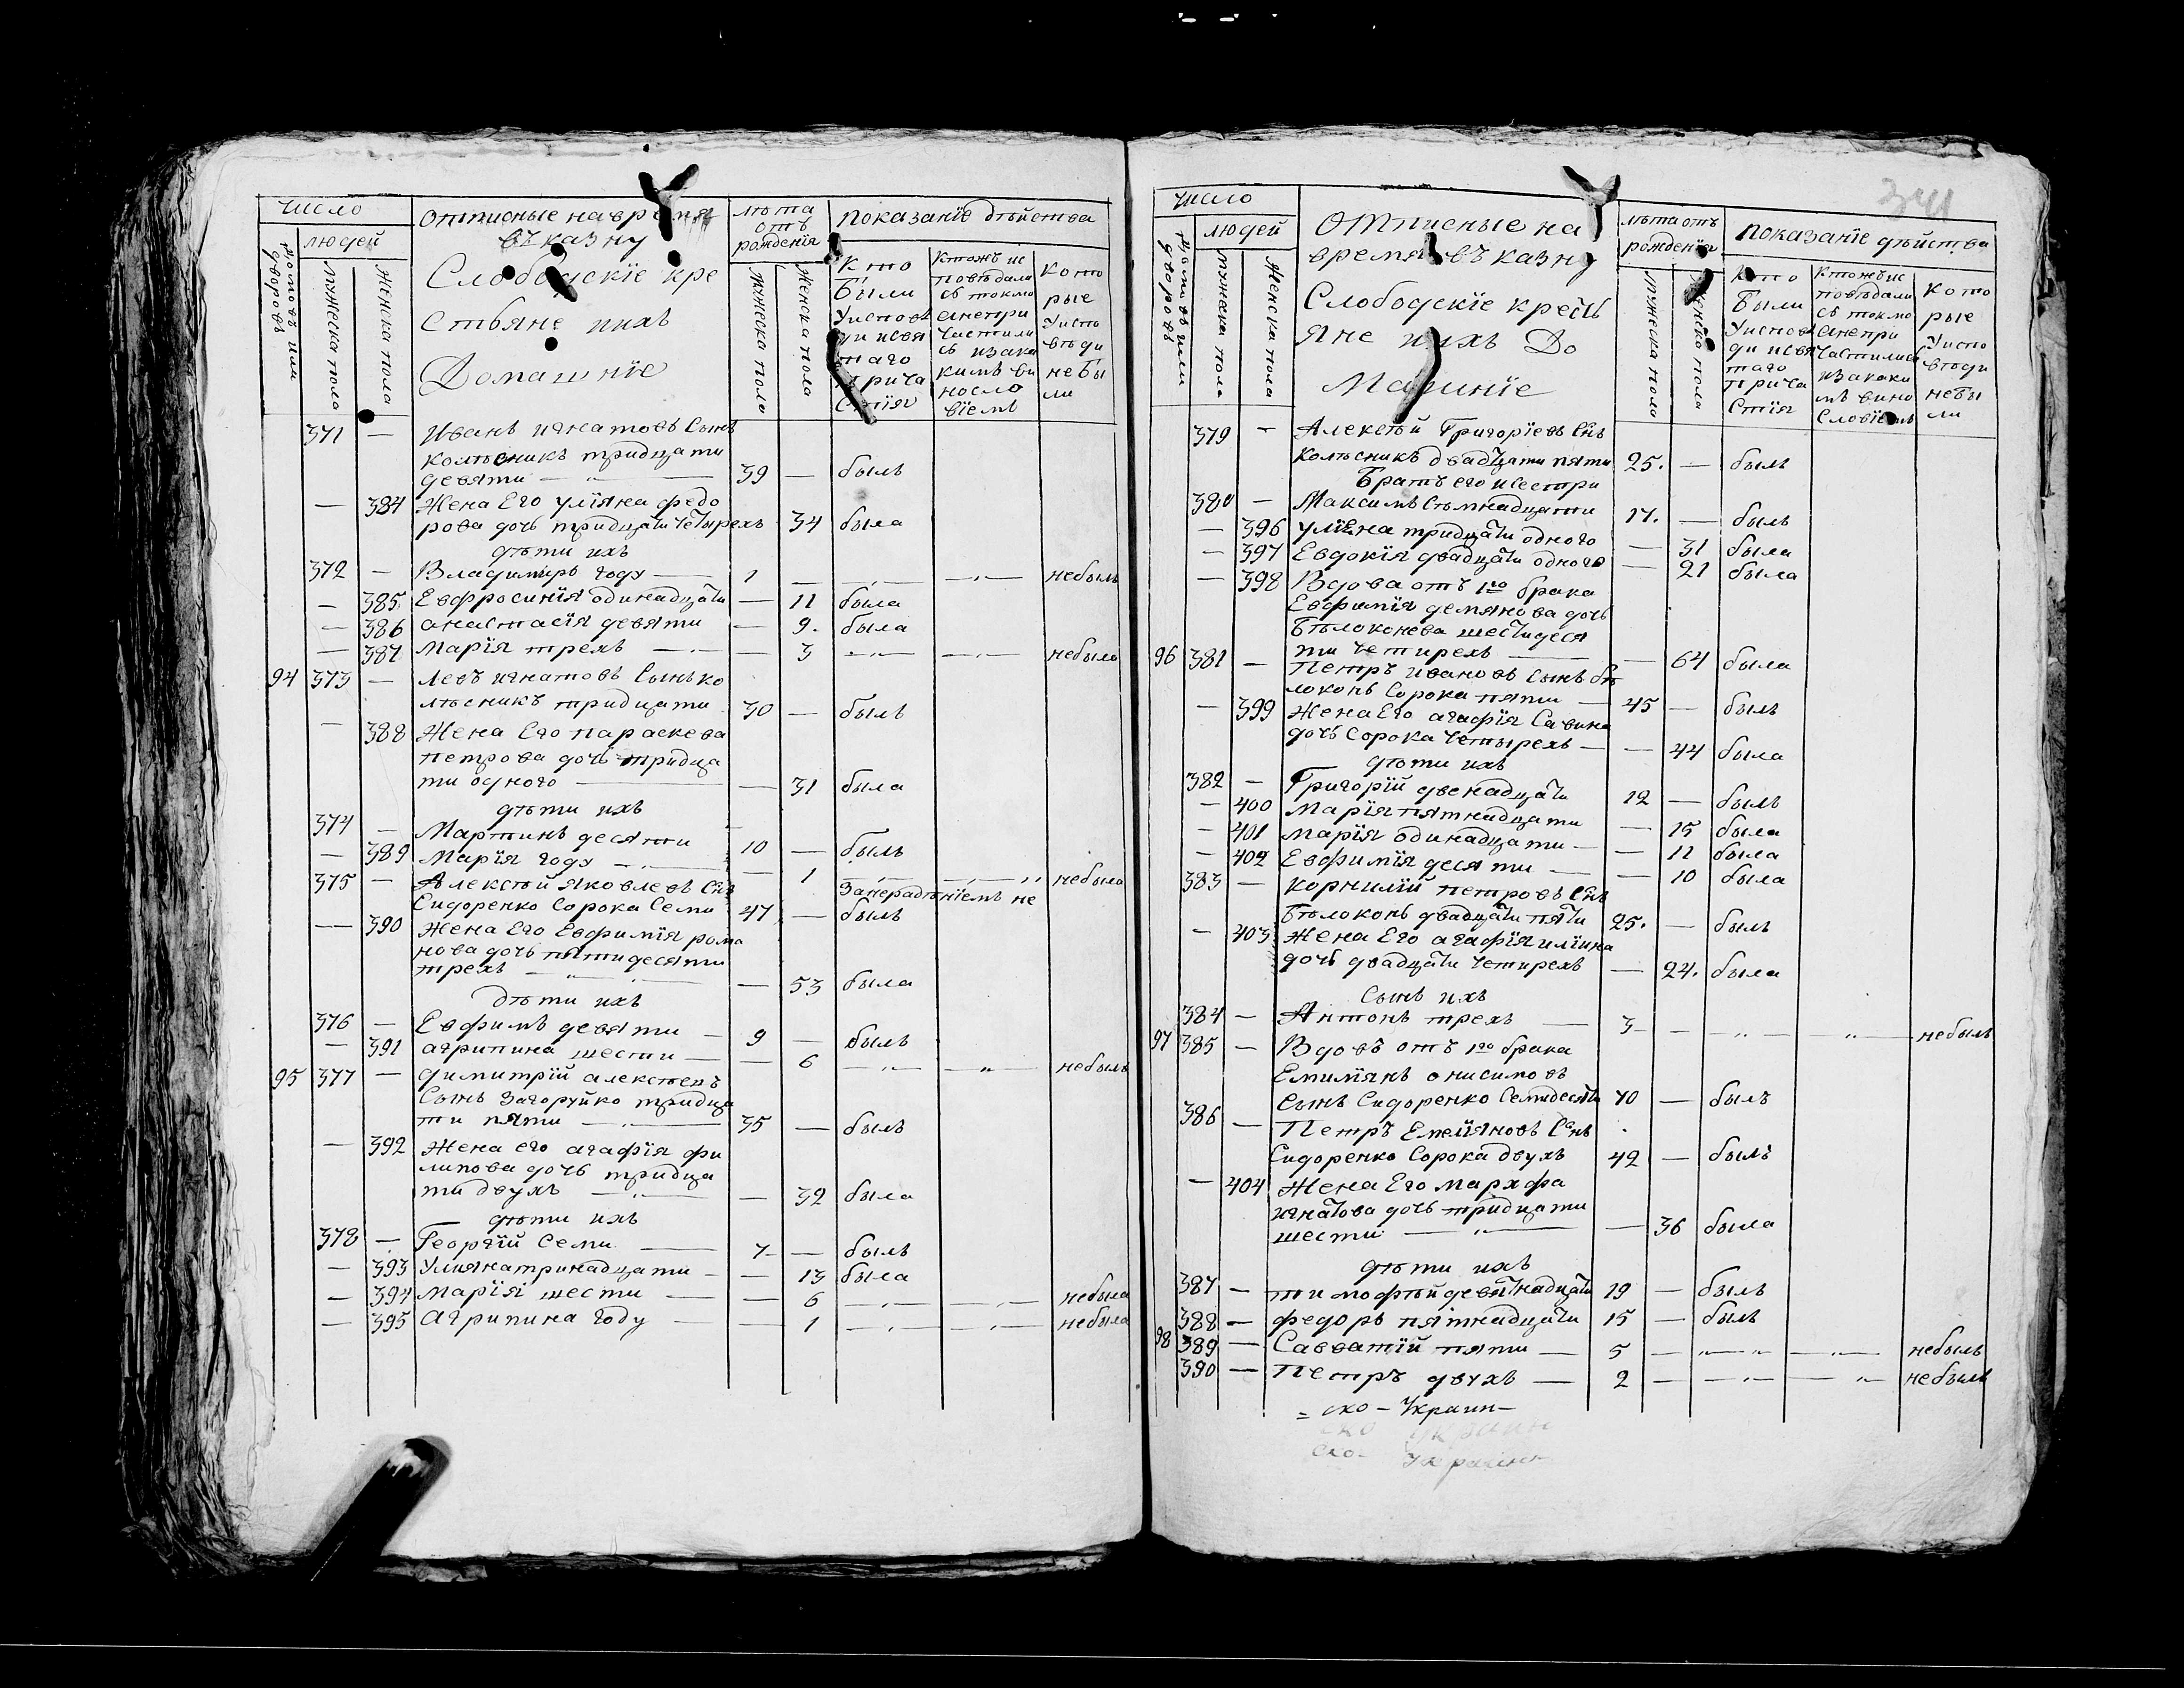 число
людей
дворовъ
мужеска пола
женска пола
Отписные на время
въ казну
Слободскіе кре
стьяне ихъ
Домашніе
лѣта
отъ
рожденія
мужеска пола
женска пола
показаніе дѣйства
Кто
были
у испове
ди и свя
таго
прича
стія
Ктожъ ис
повѣдали
сь токмо
а непри
частили
сь и зака
кимъ ви
носло
віемъ
Кото
рые
у испо
вѣди
небы
ли
371 — Иванъ игнатовъ Сынъ
колѣсникъ тридцати
девяти — 39 — былъ
— 384 Жена Его улїяна федо
рова дочь тридцати четырехъ 34 была
дѣти ихъ
372 — Владимиръ году — 1 — — — небылъ
— 385 Евфросинїя одинадцати — 11 была
— 386 анастасїя девяти — 9. была
— 387 Марїя трехъ — — 3 — — небыла
94 373 — левъ игнатовъ Сынъ ко
лѣсникъ тридцати 30 — былъ
— 388 Жена Его параскева
петрова дочь тридца
ти одного — — 31 была
дѣти ихъ
374 — Мартинъ десяти 10 — былъ
— 389 Марїя году — — 1 — — небыла
375 — Алексѣй яковлевъ Снъ За нерадѣнїемъ не
Сидоренко Сорока Семи 47 — былъ
— 390 Жена Его Евфимїя рома
нова дочь пятидесяти
трехъ — — 53 была
Дѣти ихъ
376 — Евфимъ девяти — 9 — былъ
— 391 агрипина шести — — 6 — — небылъ
95 377 — димитрїй алексѣевъ
Сынъ Загоруйко тридца
ти пяти — 35 — былъ
— 392 Жена его агафїя фи
липова дочь тридца
ти двухъ — — 32 была
дѣти ихъ
378 — Георгїй Семи — 7 — былъ
— 393 Улияна тринадцати — — 13 была
— 394 Марїя шести — — 6 — — небыла
— 395 Агрипина году — — 1 — — небыла
число
людей
дворовъ
мужеска пола
Женска пола
Отписные на
время въ казну
Слободскїе кресть
яне ихъ До
машнїе
лѣта отъ
рожденїя
мужеска пола
женска пола
показанїе дѣйства
Кто
были
у испове
ди и свя
таго
прича
стїя
Ктожъ ис
повѣдали
сь токмо
а непри
частились
и за каки
мъ вино
словїемъ
Кото
рые
у испо
вѣди
небы
ли
379 — Алексѣй Григорїевъ Снъ
Колѣсникъ двадцати пяти 25. — былъ
Братъ его и сестри
380 — Максимъ Сѣмнадцати 17. — былъ
— 396 улїяна тридцати одного — 31 была
— 397 Евдокїя двадцати одного — 21 была
— 398 Вдова отъ 1го брака
Евфимїя демянова дочь
Бѣлоконева шестидеся
ти четирехъ — — 64 была
96 381 — Петръ ивановъ Сынъ бѣ
локонь Сорока пяти — 45 — былъ
— 399 Жена Его агафїя Савина
дочь Сорока четырехъ — — 44 была
дѣти ихъ
382 — Григорїй двенадцати 12 — былъ
— 400 Марїя пятнадцати — 15 была
— 401 Марїя одинадцати — — 11 была
— 402 Евфимїя десяти — — 10 была
383 — корнилїй петровъ Снъ
Бѣлоконь двадцати пяти 25. — былъ
— 403 Жена Его агафїя илїина
дочь двадцати четирехъ — 24. была
Сынъ ихъ
384 — Антонъ трехъ — 3 — — — небылъ
97 385 — Вдовъ отъ 1го брака
Емилїянъ онисимовъ
Сынъ Сидоренко Семидесяти 70 — былъ
386 — Петръ Емелїяновъ Снъ
Сидоренко Сорока двухъ 42 — былъ
— 404 Жена Его Мархфа
игнатова дочь тридцати
шести — — 36 была
дѣти ихъ
387 — тимофѣй девятнадцати 19 — былъ
388 — федоръ пятнадцати 15 — былъ
98 389 — Савватїй пяти — 5 — — — небылъ
390 — Петръ двухъ — 2 — — — небылъ
= ско - Украин-
ско Украин
ско- Украинс-